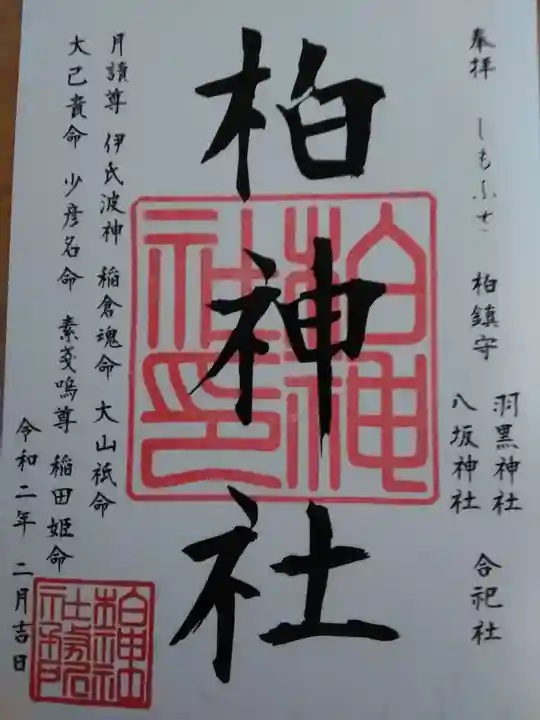 奉拝 しもふさ 柏鎮守 羽黒神社 八坂神社 合祀社
柏神社
柏神社印
月讀尊 伊氐波神 稲倉魂命 大山祇命
大己貴命 少彦名命 素戔嗚尊 稲田姫命
令和二年 二月吉日
柏神社社務所之印